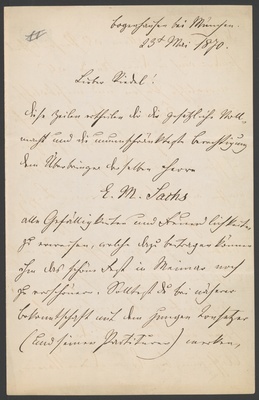 Bogenhausen bei München.
23t Mai 1870.
Lieber Riedel!
diese Zeilen ertheilen dir die gesetzliche Voll-
macht und die unumschränkteste Berechtigung
dem Überbringer derselben Herrn
E. M. Sachs
alle Gefälligkeiten und Freundlichkeiten
zu erweisen, welche dazu beitragen können
ihm das schöne Fest in Weimar noch
zu verschönern. Solltest du bei näherer
Bekanntschaft mit dem jungen Tonsetzer
(und seiner Partituren) merken,